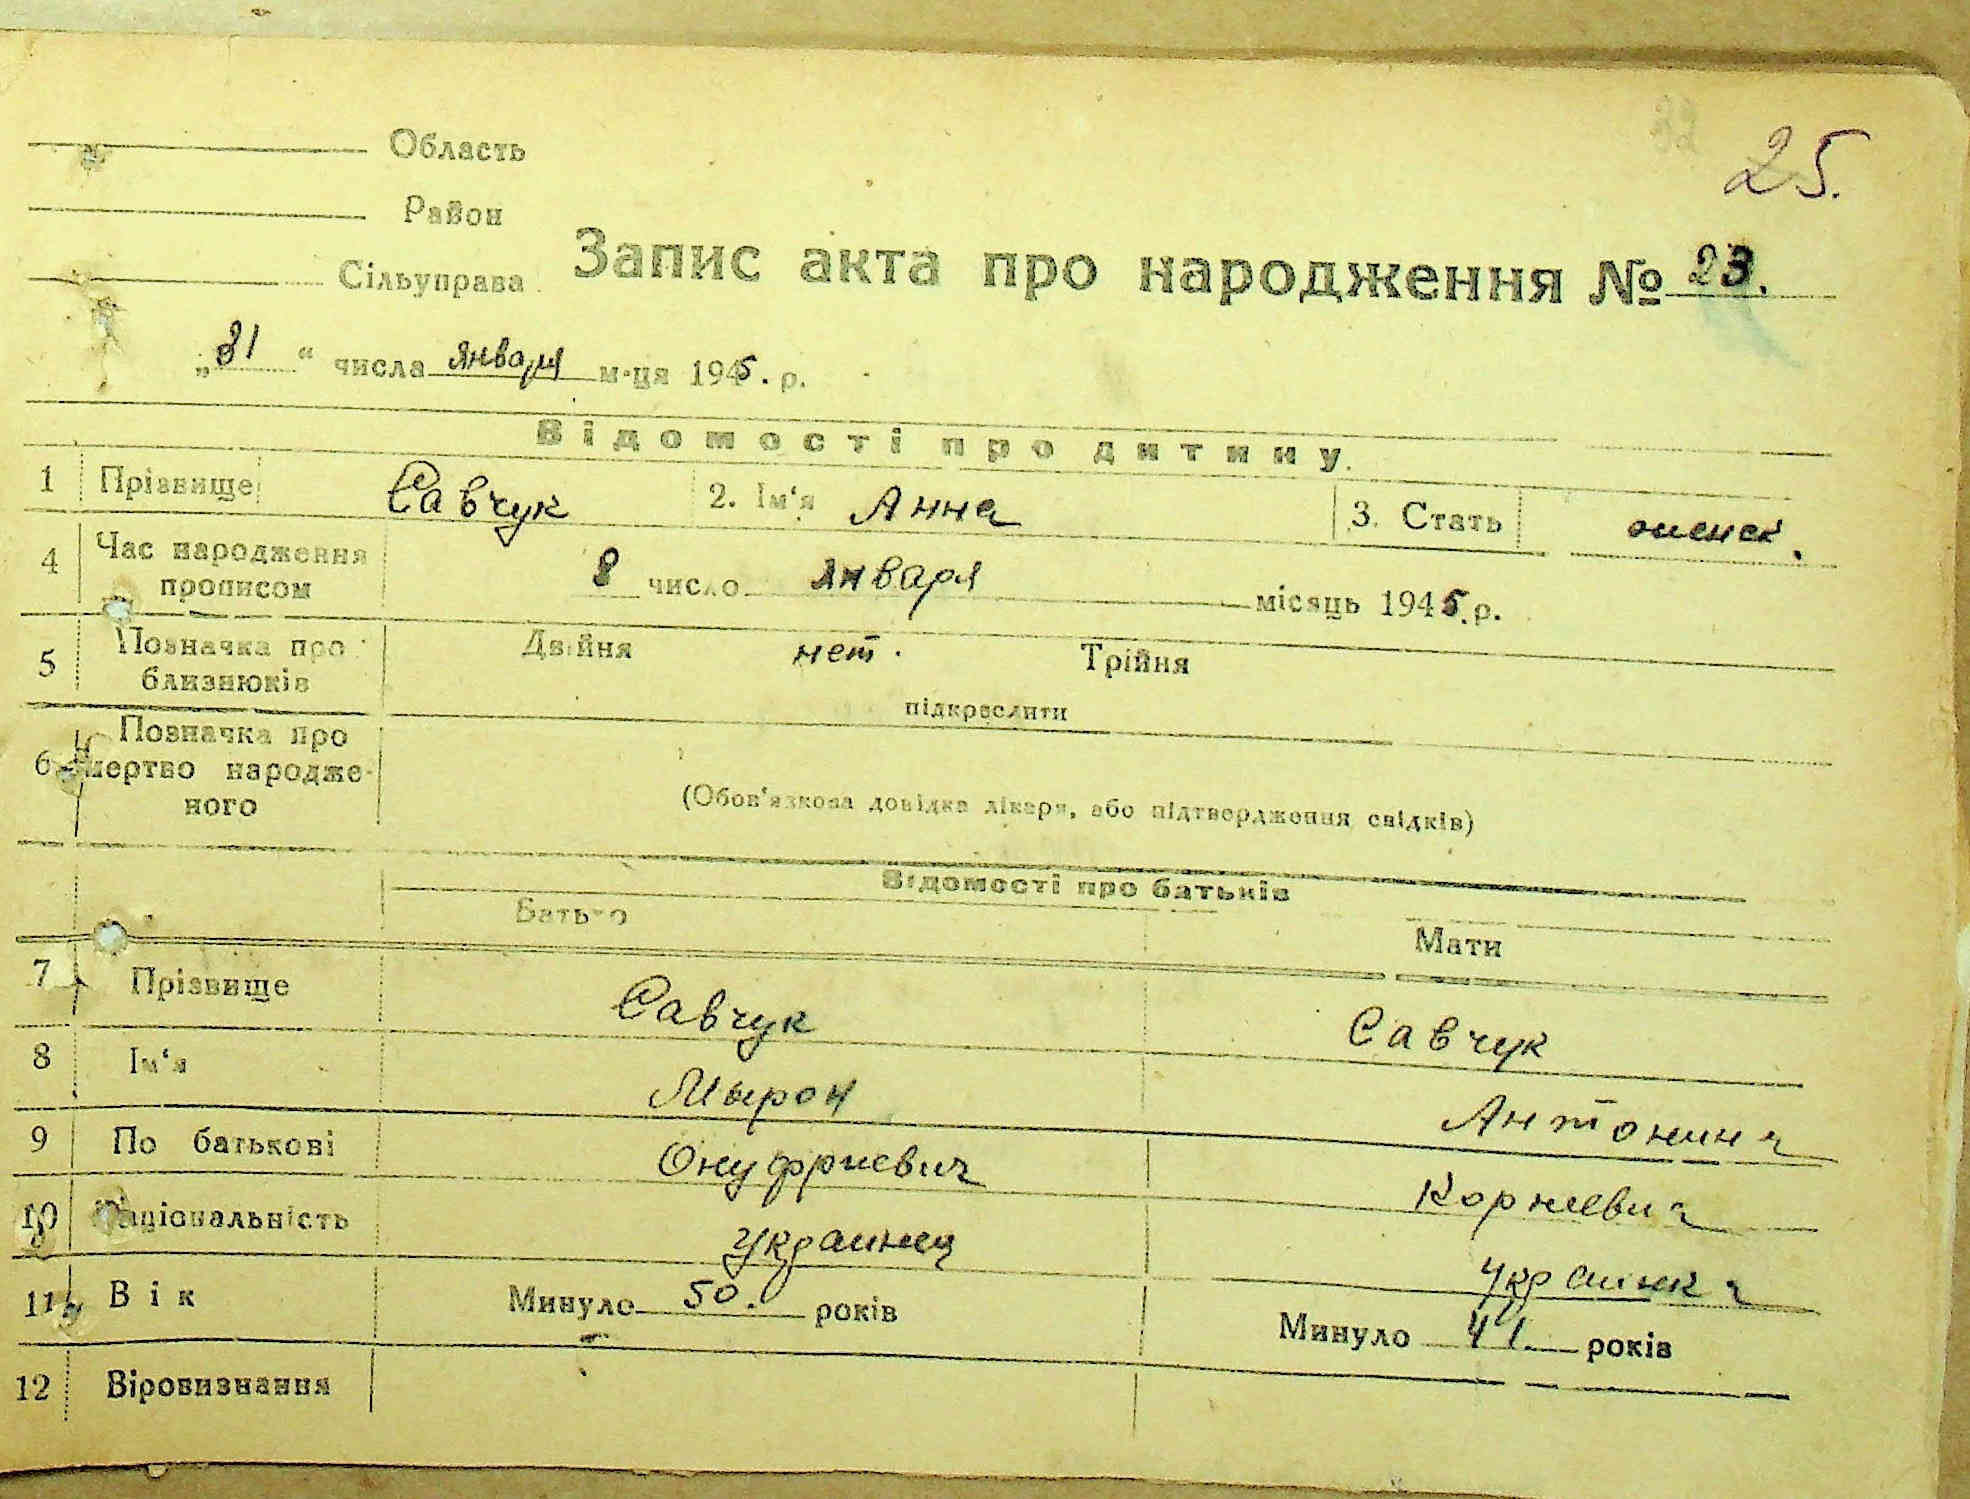 25.
Область
Район
Сільуправа
Запис акта про народження № 23.
„31“ числа января м-ця 1945. р.
Відомості про дитину.
1 Прізвище Савчук 2. Ім‘я Анна 3. Стать женск.
4 Час народження прописом 8 число января місяць 1945. р.
5 Позначка про близнюків Двійня нет. Трійня
підкреслити
6 Позначка про мертво народже-
ного
(Обов‘язкова довідка лікаря, або підтвердження свідків)
Відомості про батьків
Батько Мати
7 Прізвище Савчук Савчук
8 Ім‘я Мырон Антонина
9 По батькові Онуфриевич Корневич
10 Національність украинец украинка
11 Вік Минуло 50. років Минуло 41. років
12 Віровизнання